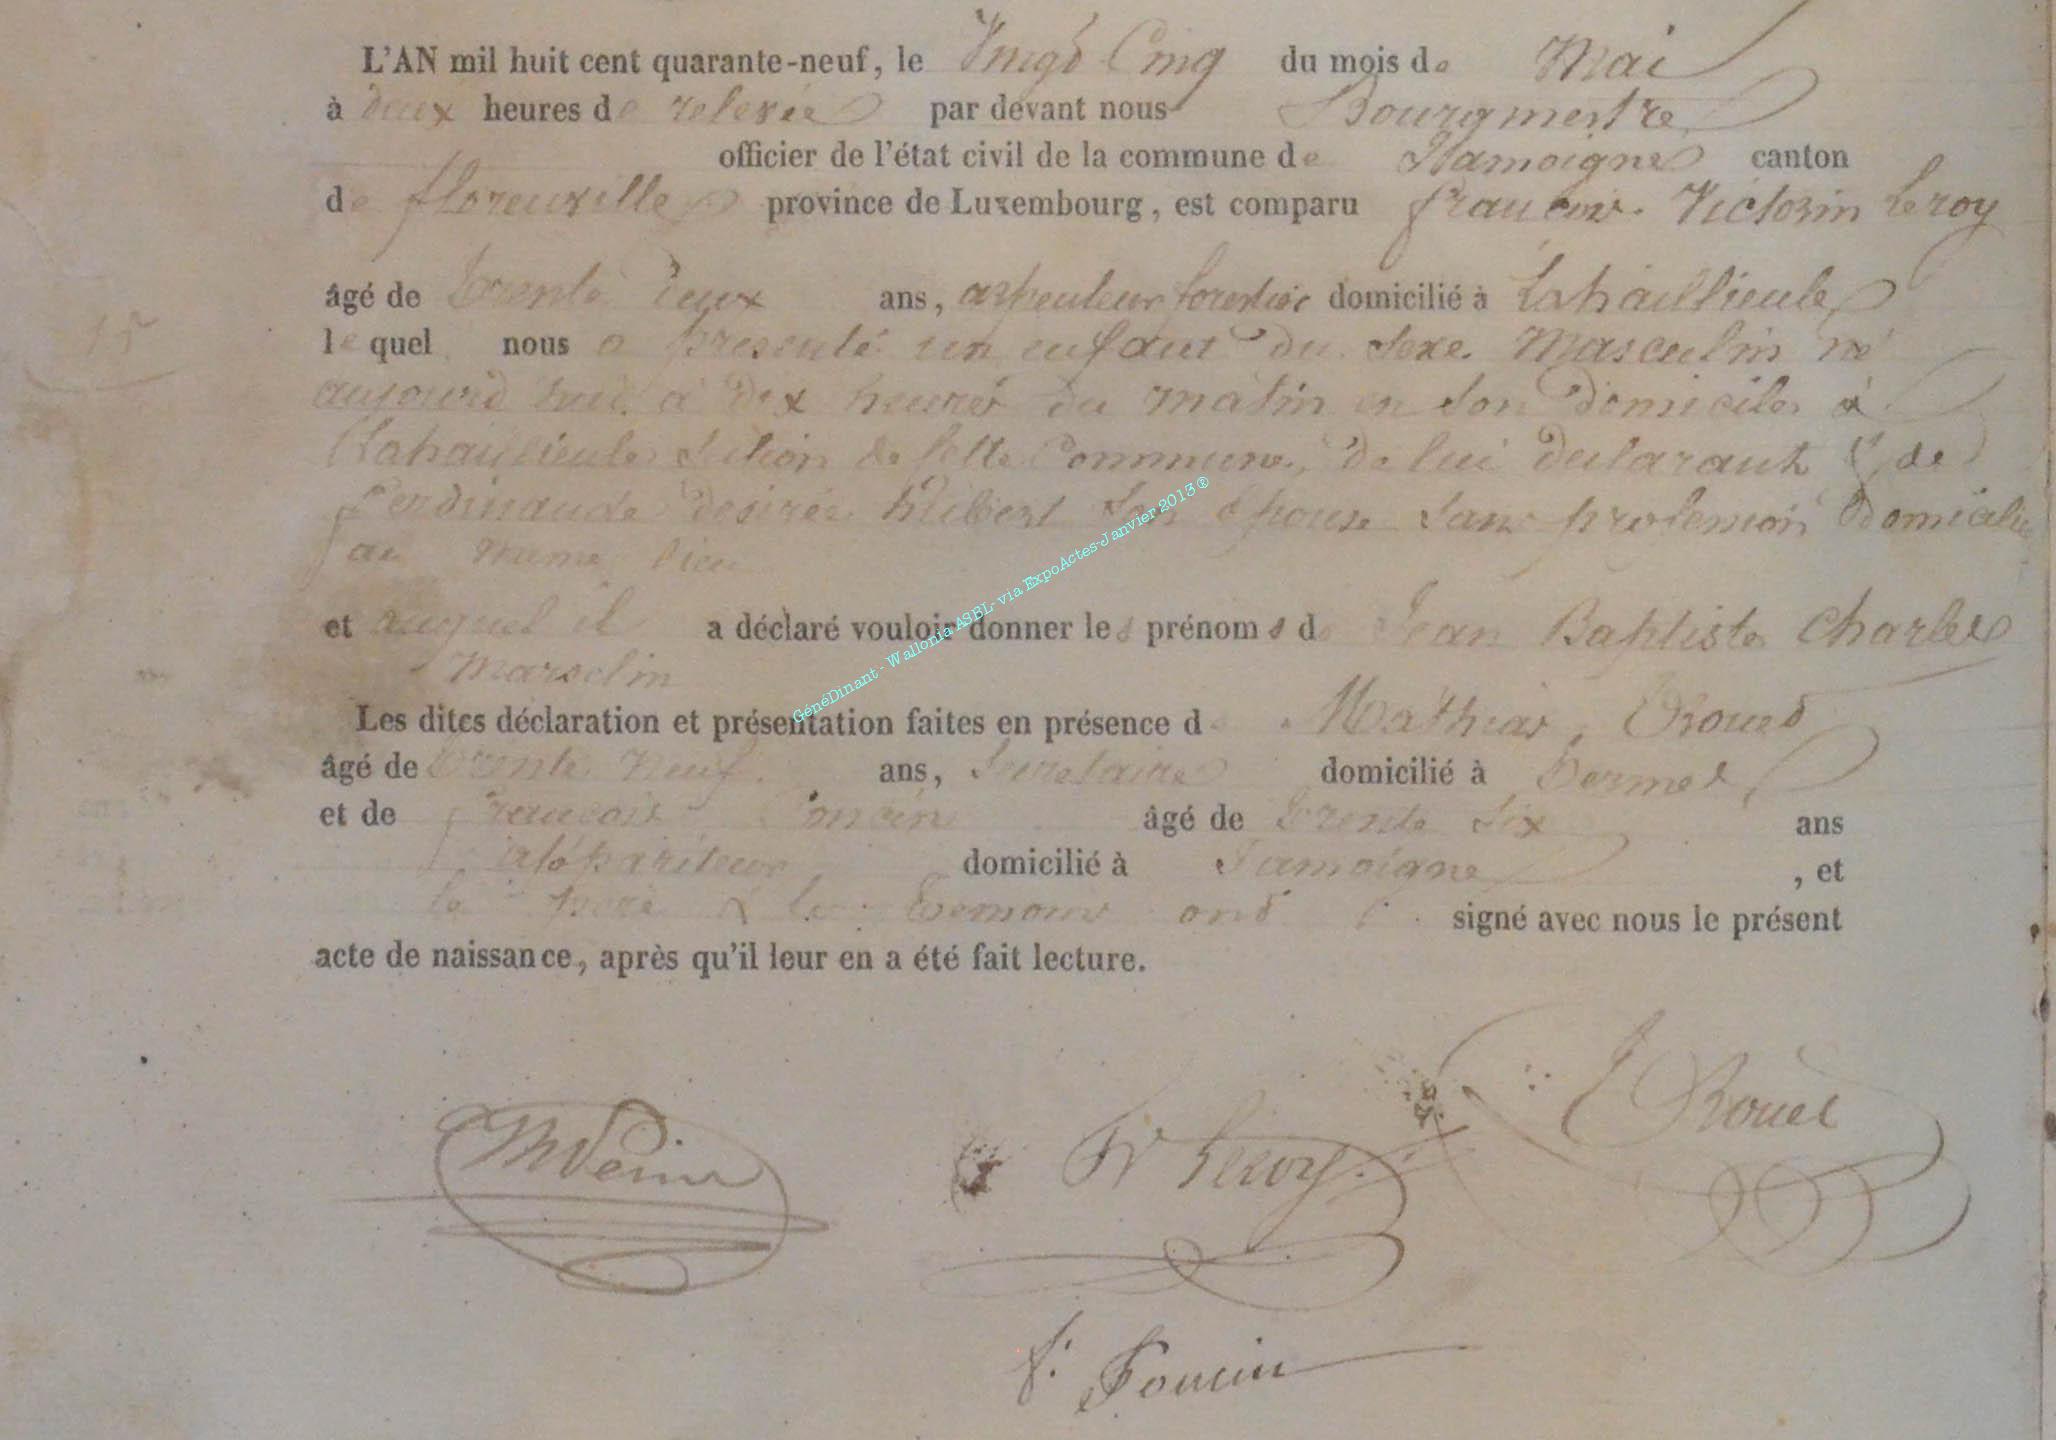 L'AN mil huit cent quarante-neuf, le Vingt Cinq du mois de Mai
à deux heures de relevée par devant nous Bourgmestre
officier de l'état civil de la commune de Jamoigne canton
de florenville province de Luxembourg, est comparu françois Victorin Leroy
âgé de trente deux ans, arpenteur forestier domicilié à Lahaillieule
15
lequel nous a presenté un enfant du sexe Masculin né
aujourd'hui à dix heures du matin en son domicile à
Lahaillieule section de cette Commune, de lui declarant & de
ferdinande desirée hubert son épouse sans profession domicilié
au meme lieu
et auquel il a déclaré vouloir donner les prénoms de Jean Baptiste Charles
Marselin
Les dites déclaration et présentation faites en présence de Mathias
âgé de trente neuf ans, Secretaire domicilié à Termes
et de françois Poncin âgé de trente Six ans
domicilié à Jamoigne, et
le père & les temoins ont signé avec nous le présent
acte de naissance, après qu'il leur en a été fait lecture.
GénéDinant - Wallonia ASBL- via ExpoActes-Janvier 2013®
Leroy
f. Poncin